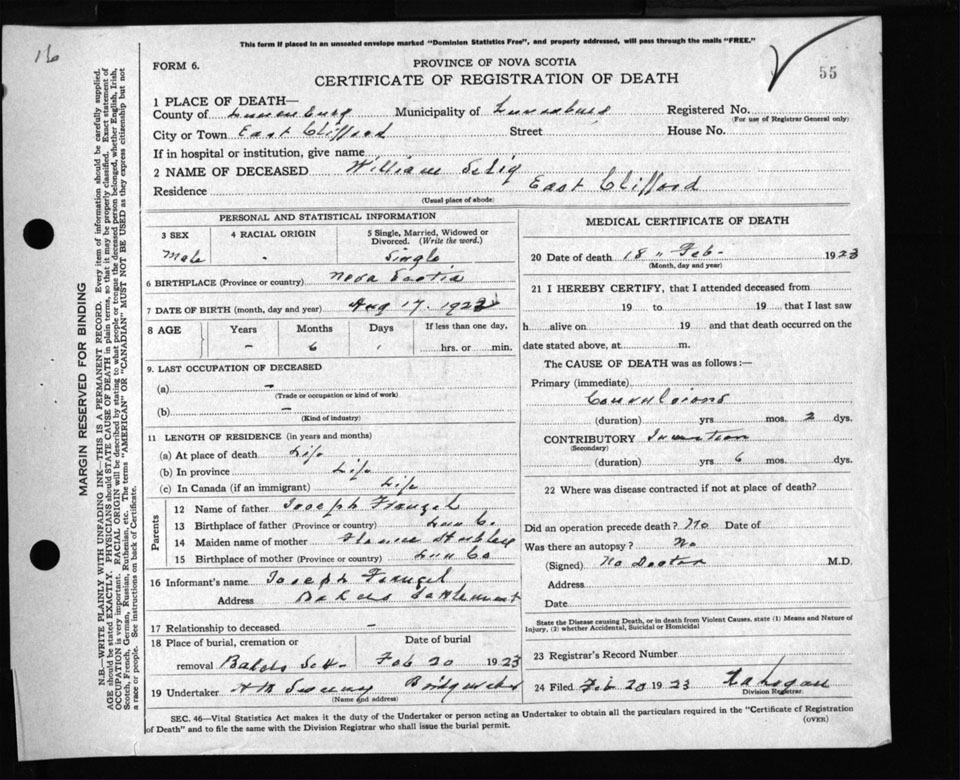 16
This form if placed in an unsealed envelope marked "Dominion Statistics Free", and properly addressed, will pass through the mails "FREE."
FORM 6.
PROVINCE OF NOVA SCOTIA
CERTIFICATE OF REGISTRATION OF DEATH
55
1 PLACE OF DEATH—
County of Lunenburg Municipality of Lunenburg Registered No.
(For use of Registrar General only)
City or Town East Clifford Street House No.
If in hospital or institution, give name
2 NAME OF DECEASED William Selig
Residence East Clifford
(Usual place of abode)
MARGIN RESERVED FOR BINDING
N.B.—WRITE PLAINLY WITH UNFADING INK—THIS IS A PERMANENT RECORD. Every item of information should be carefully supplied.
AGE should be stated EXACTLY. PHYSICIANS should STATE CAUSE OF DEATH in plain terms, so that it may be properly classified. Exact statement of
OCCUPATION is very important. RACIAL ORIGIN will be described by stating to what people or tongue the deceased person belonged, whether English, Irish,
Scotch, French, German, Russian, Ruthenian, etc. The terms "AMERICAN" OR "CANADIAN" MUST NOT BE USED as they express citizenship but not
a race or people. See instructions on back of Certificate.
PERSONAL AND STATISTICAL INFORMATION
3 SEX 4 RACIAL ORIGIN 5 Single, Married, Widowed or
Divorced. (Write the word.)
Male - Single
6 BIRTHPLACE (Province or country) Nova Scotia
7 DATE OF BIRTH (month, day and year) Aug 17. 1922
8 AGE Years Months Days If less than one day,
– 6 hrs. or min.
9. LAST OCCUPATION OF DECEASED
(a) –
(Trade or occupation or kind of work)
(b) –
(Kind of industry)
11 LENGTH OF RESIDENCE (in years and months)
(a) At place of death Life
(b) In province Life
(c) In Canada (if an immigrant) Life
Parents
12 Name of father Joseph
13 Birthplace of father (Province or country) Lun Co.
14 Maiden name of mother
15 Birthplace of mother (Province or country) Lun Co
16 Informant's name Joseph
Address Bakers Settlement
17 Relationship to deceased –
18 Place of burial, cremation or Date of burial
removal Sett. Feb 20 1923
19 Undertaker Bridgewater
(Name and address)
MEDICAL CERTIFICATE OF DEATH
20 Date of death 18 " Feb - 1923
(Month, day and year)
21 I HEREBY CERTIFY, that I attended deceased from
19 to 19 that I last saw
h alive on 19 and that death occurred on the
date stated above, at m.
The CAUSE OF DEATH was as follows:—
Primary (immediate)
Convulsions
(duration) yrs. mos. 2 dys.
CONTRIBUTORY
(Secondary)
(duration) yrs. 6 mos. dys.
22 Where was disease contracted if not at place of death?
Did an operation precede death? No Date of
Was there an autopsy? No
(Signed) No Doctor M.D.
Address
Date
State the Disease causing Death, or in death from Violent Causes, state (1) Means and Nature of
Injury, (2) whether Accidental, Suicidal or Homicidal
23 Registrar's Record Number
24 Filed Feb 20 1923
Division Registrar.
SEC. 46—Vital Statistics Act makes it the duty of the Undertaker or person acting as Undertaker to obtain all the particulars required in the "Certificate of Registration
of Death" and to file the same with the Division Registrar who shall issue the burial permit.
(OVER)